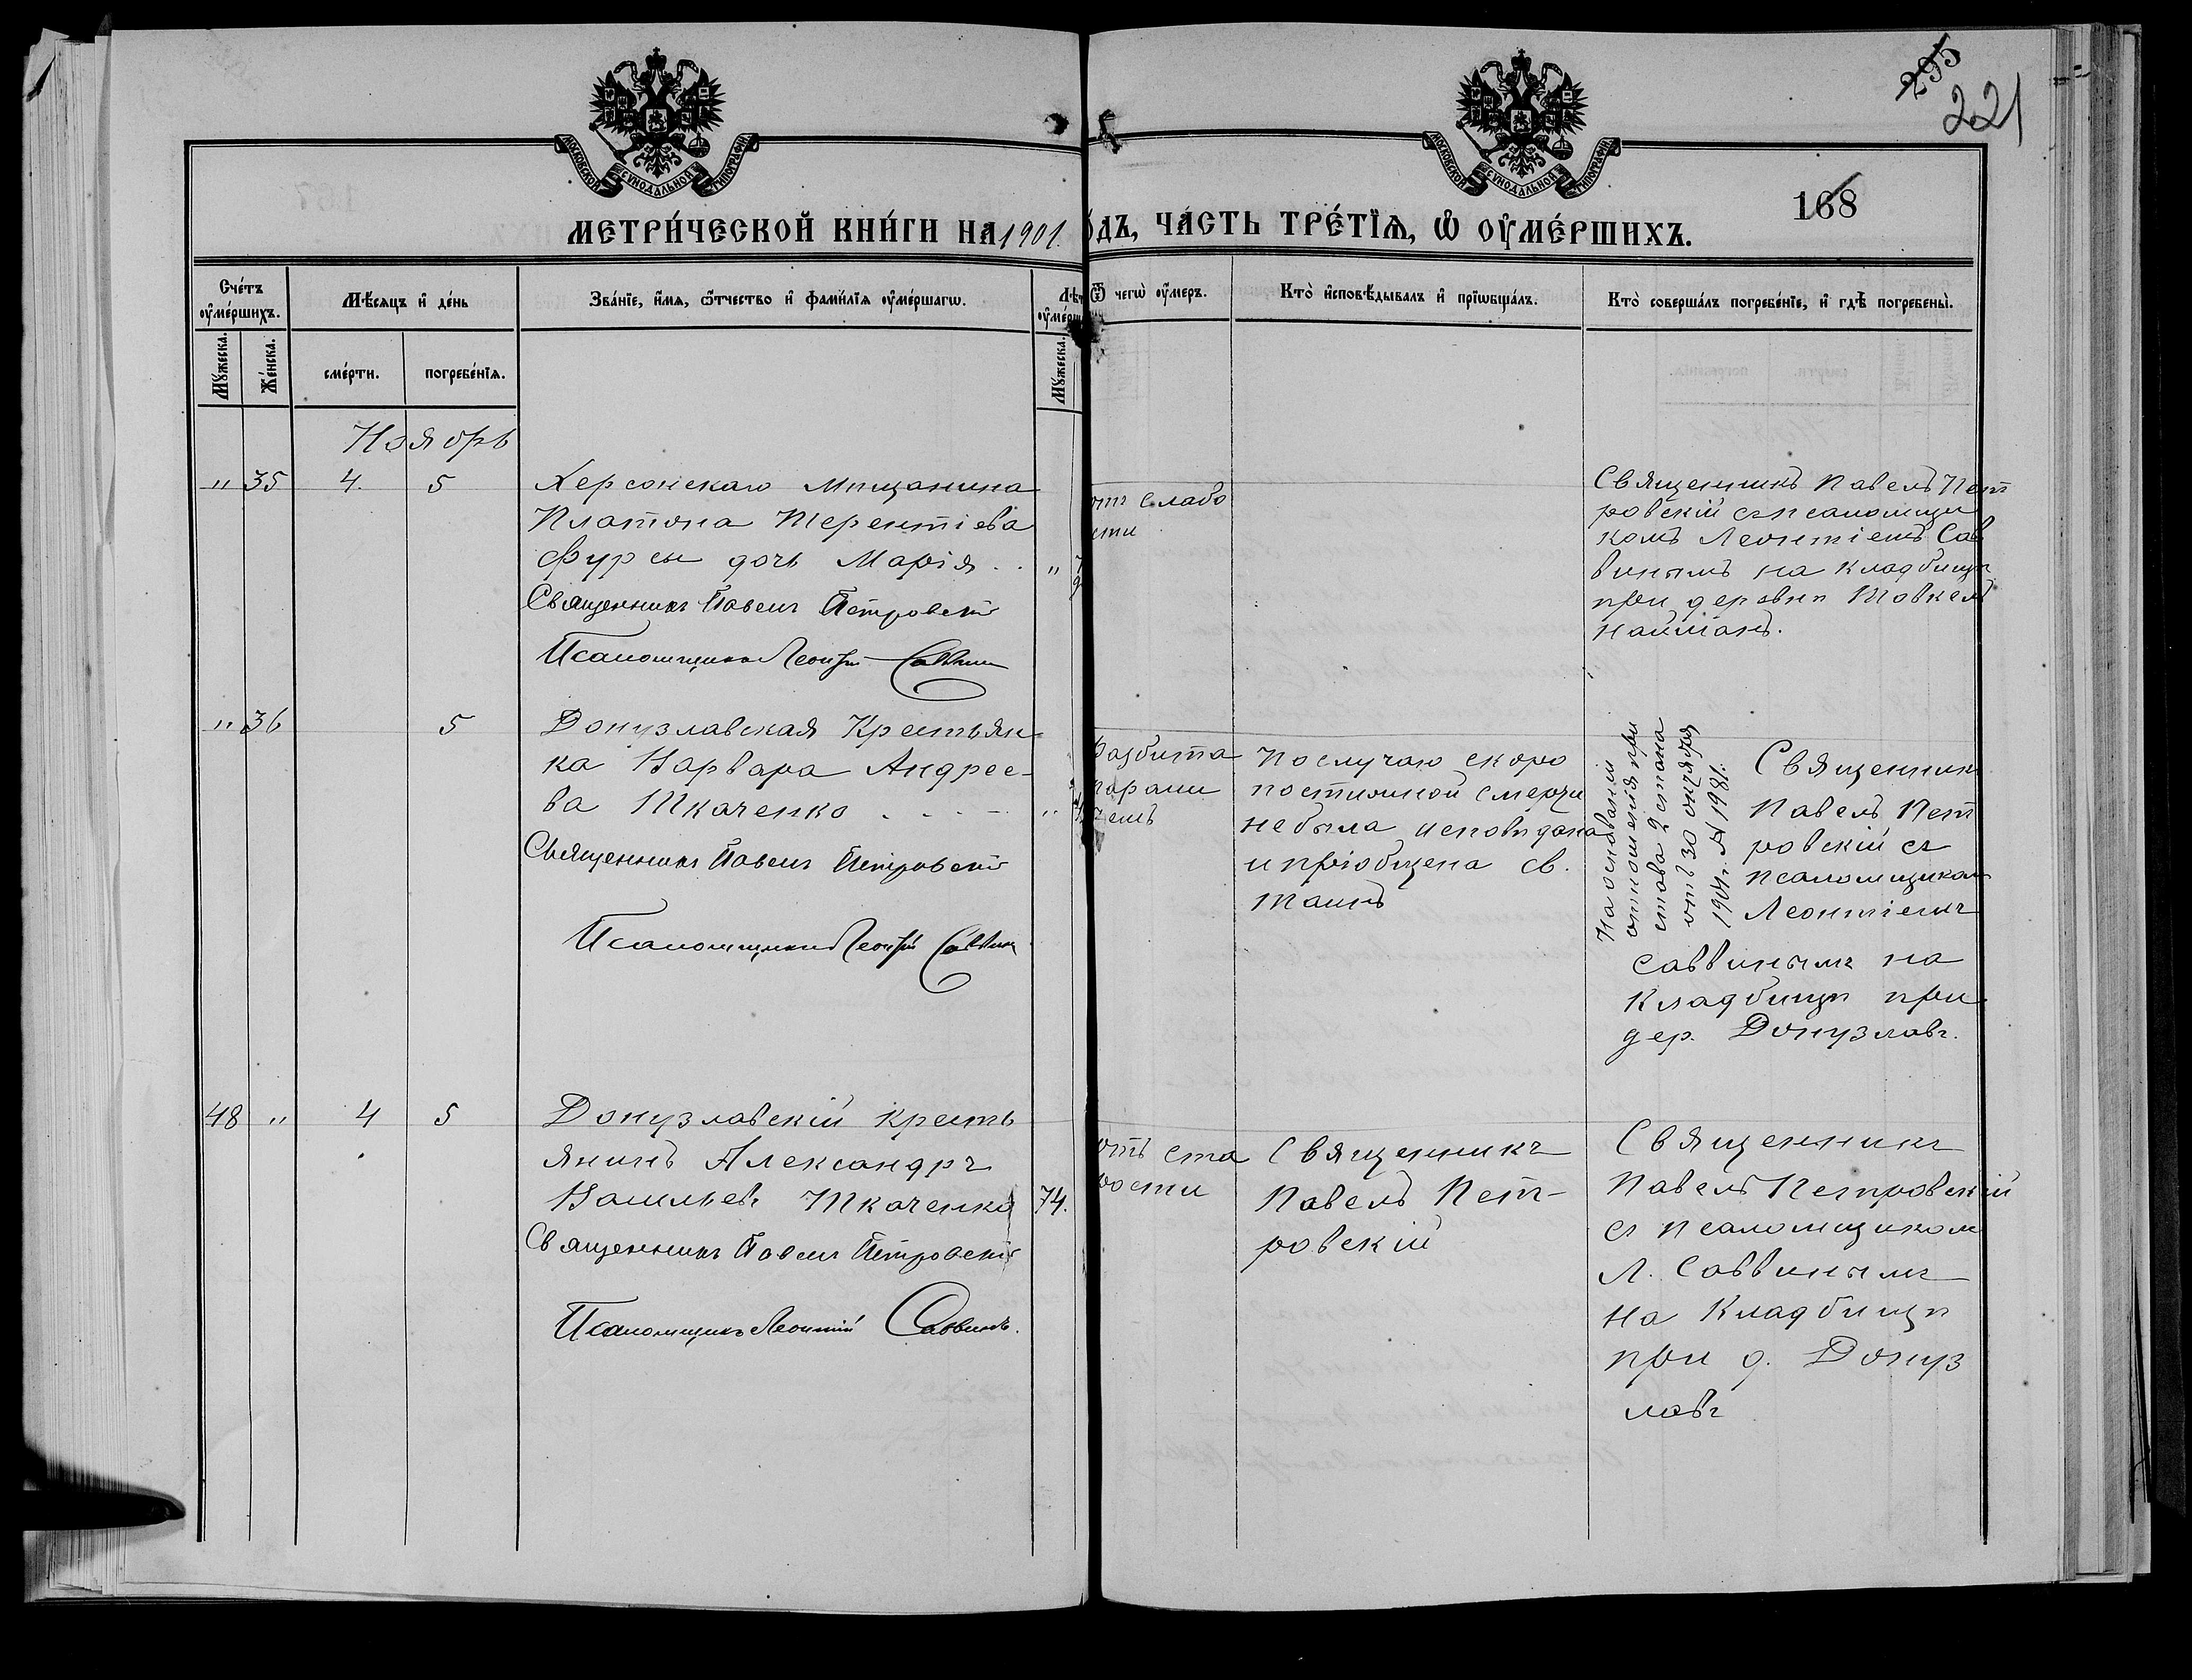 295
221
168
МОСКОВСКОЙ СѴНОДАЛЬНОЙ ТИПОГРАФІИ
МОСКОВСКОЙ СѴНОДАЛЬНОЙ ТИПОГРАФІИ
МЕТРИ́ЧЕСКОЙ КНИ́ГИ НА 1901.
ОДЪ, ЧА́СТЬ ТРЕ́ТЇѦ, Ѡ ОУМЕ́РШИХЪ.
Сче́тъ оуме́ршихъ.
Мꙋжеска.
Же́нска.
Мѣ́сяцъ и де́нь
сме́рти.
погребе́нїѧ.
Зва́нїе, и́мѧ, ѻ҆́тчество и фами́лїѧ оуме́ршагѡ.
Лѣт
оуме́рш
Мꙋжеска.
Ѿ чегѡ̀ оу́меръ.
Кто̀ и҆сповѣ́дывалъ и прїѡбща́лъ.
Кто̀ соверша́лъ погребе́нїе, и гдѣ̀ погребены̀.
Ноябрь
" 35 4. 5
Херсонскаго мѣщанина
Платона Терентіева
Фурсы дочь Марія . . "
Священникъ Павелъ Петровскій
Псаломщикъ Леонтій Саввинъ
отъ слабо
сти
Священникъ Павелъ Пет
ровскій съ псаломщи
комъ Леонтіемъ Сав
винымъ на кладбищѣ
при деревнѣ Товкелъ
Найманъ.
" 36 5
Донузлавская Крестьян-
ка Варвара Андрее-
ва Ткаченко . . . - "
Священникъ Павелъ Петровскій
Псаломщикъ Леонтій Саввинъ
Разбита
парали
чемъ
По случаю скоро
постижной смерти
не была исповѣдана
и пріобщена св.
Таинъ
На основаніи
отношенія при
става 2 стана
отъ 30 октября
1901 г. № 1981.
Священник
Павелъ Пет
ровскій съ
псаломщиком
Леонтіемъ
Саввинымъ на
кладбищѣ при
дер. Донузлавъ.
48 " 4 5
Донузлавскій кресть
янинъ Александръ
Васильевъ Ткаченко 74.
Священникъ Павелъ Петровскій
Псаломщикъ Леонтій Саввинъ.
отъ ста
рости
Священникъ
Павелъ Пет-
ровскій
Священникъ
Павелъ Петровскій
съ псаломщиком
Л. Саввинымъ
на кладбищѣ
при д. Донуз
лавъ